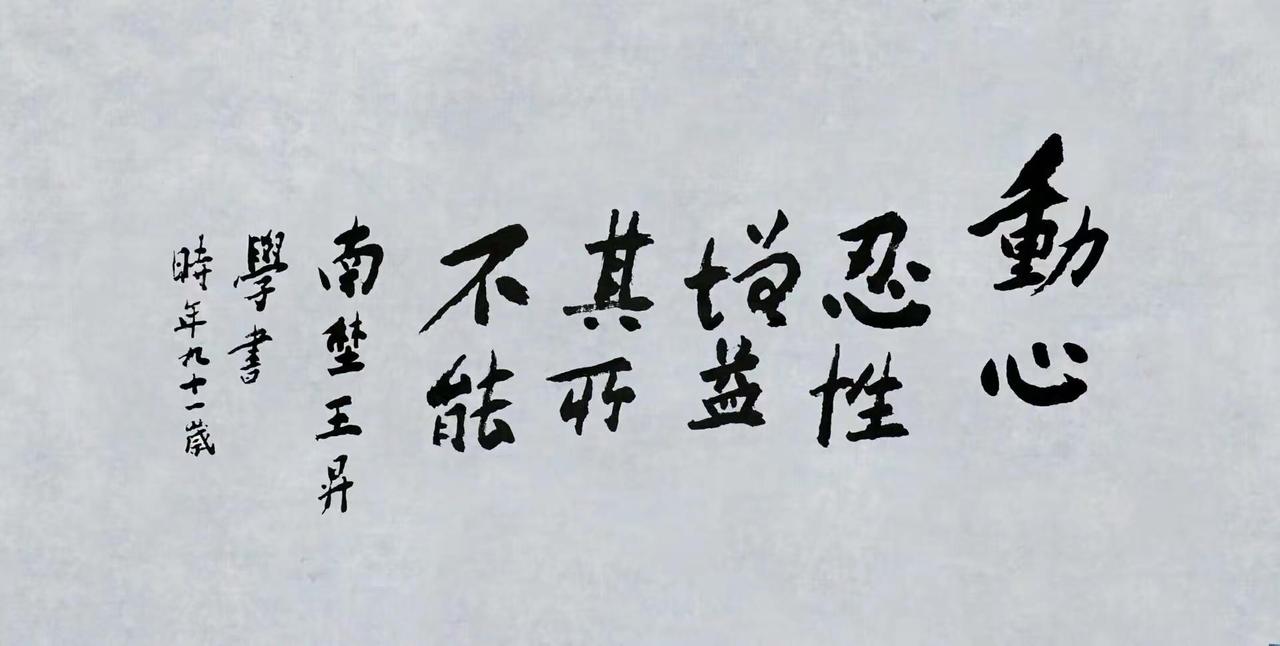 動心
忍性
增益
其所
不能
南埜王昇
學書
時年九十一歲